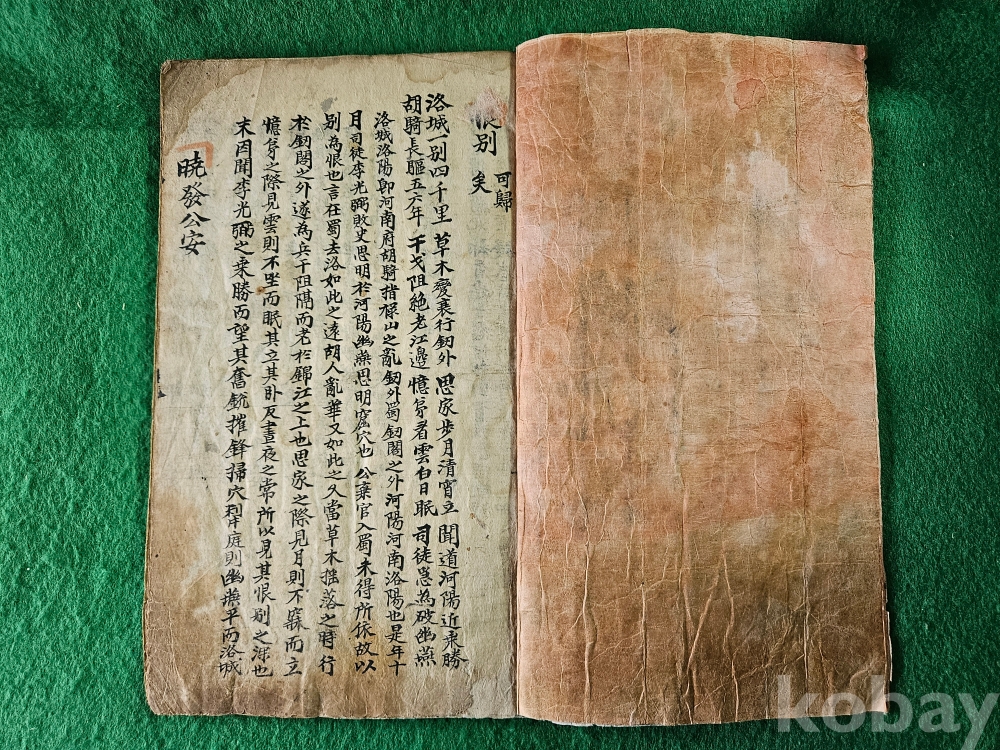 恨別 可歸矣
洛城一別四千里 草木變衰行釼外 思家步月清宵立 聞道河陽近乘勝
胡騎長驅五六年 干戈阻絶老江邊 憶弟看雲白日眠 司徒急為破幽燕
洛城洛陽即河南府胡騎指祿山之亂釼外蜀釼閣之外河陽河南洛陽也是年十
月司徒李光弼敗史思明於河陽幽燕思明窟穴也公棄官入蜀未得所依故以
別為恨也言在蜀去洛如此之遠胡人亂華又如此之久當草木摇落之時行
於釼閣之外遂為兵干阻隔而老於錦江之上也思家之際見月則不寐而立
憶弟之際見雲則不坐而眠其立其卧反晝夜之常所以見其恨別之深也
末因聞李光弼之乘勝而望其奮銳摧鋒掃穴犁庭則幽燕平而洛城
曉發公安
kobay